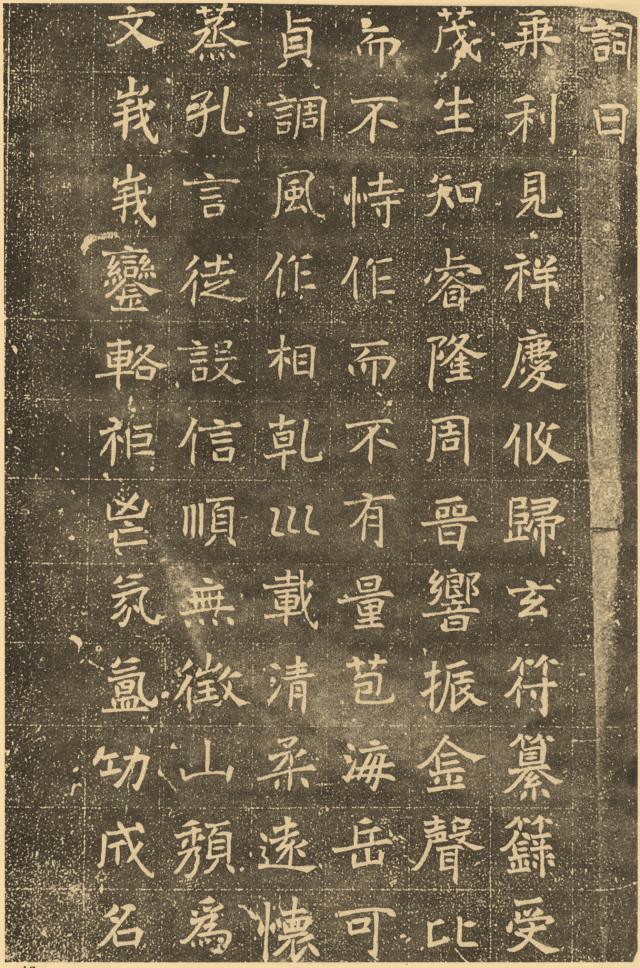 詞曰
乗利見祥慶攸歸玄符纂籙受
茂生知睿隆周晉響振金聲比
而不恃作而不有量苞海岳可
貞調風作相乹巛載清柔遠懷
蒸孔言徒設信順無徵山頹爲
文峩峩鑾輅秬鬯氛氳功成名